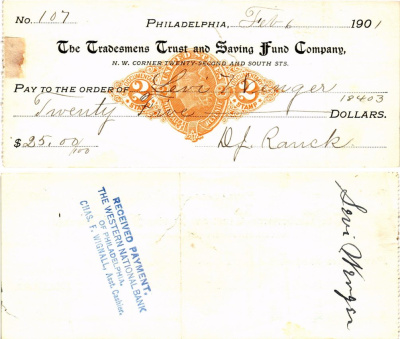 No. 107 PHILADELPHIA, Feb 6 1901
The Tradesmens Trust and Saving Fund Company,
N. W. CORNER TWENTY-SECOND AND SOUTH STS.
PAY TO THE ORDER OF Levi Wenger 12403
Twenty Five DOLLARS.
2 2
STAMP
$25.00/100 D. J. Ranck
RECEIVED PAYMENT,
THE WESTERN NATIONAL BANK
OF PHILADELPHIA,
CHAS. F. WIGNALL, Asst. Cashier.
Levi Wenger